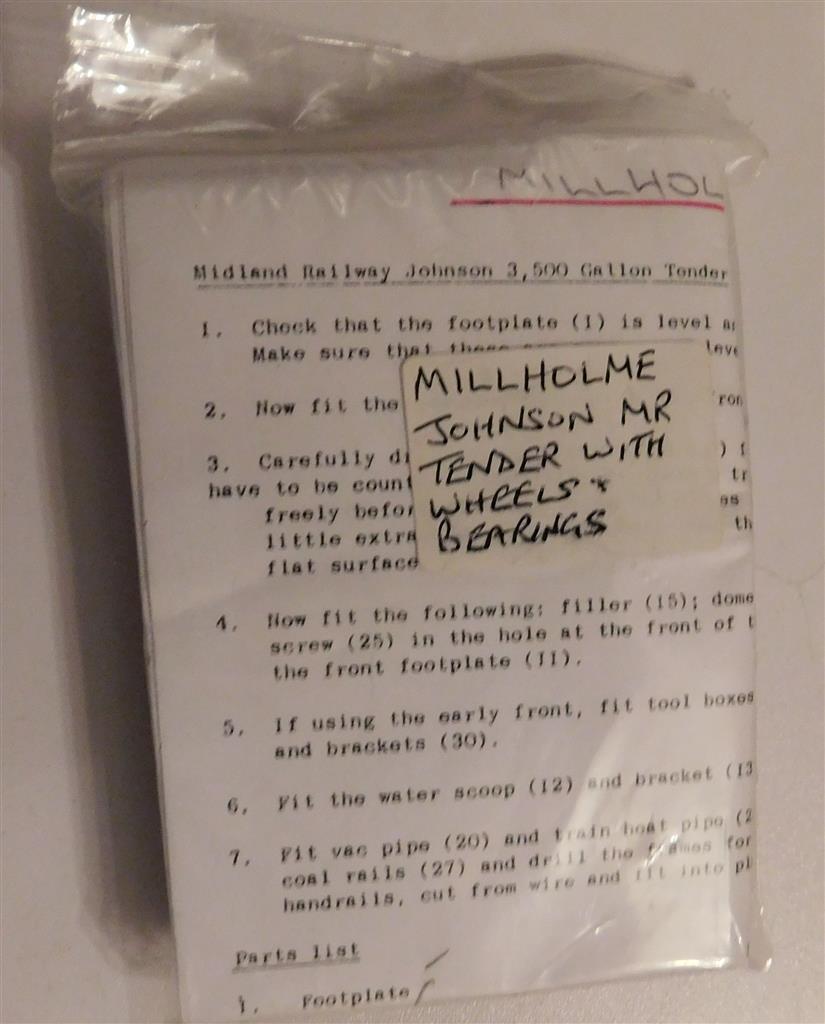 MILLHOL
Midland Railway Johnson 3,500 Gallon Tender
1. Check that the footplate (1) is level
Make sure that these
2. Now fit the
MILLHOLME
JOHNSON MR
TENDER WITH
WHEELS +
BEARINGS
3. Carefully
have to be
freely
little
flat surface
4. Now fit the following: filler (15); dome
screw (25) in the hole at the front of
the front footplate (11).
5. If using the early front, fit tool boxes
and brackets (30).
6. Fit the water scoop (12) and bracket (13
7. Fit vac pipe (20) and train heat pipe (2
coal rails (27) and drill the frames for
handrails, cut from wire and fit into
Parts list
1. Footplate